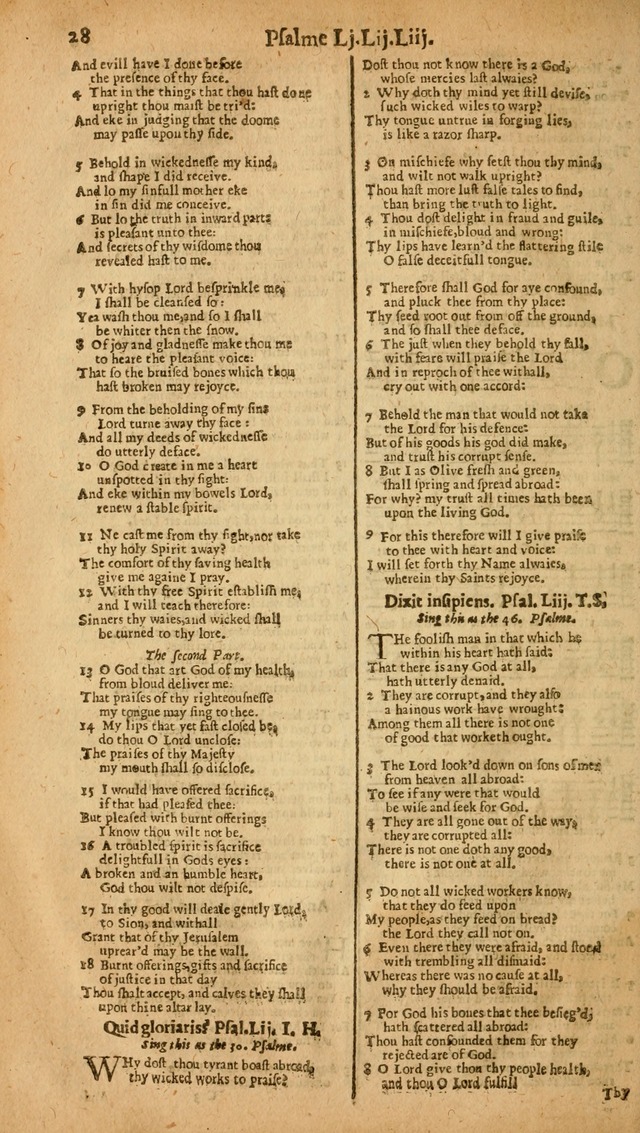 28 Psalme Lj.Lij.Liij.
And evill have I done before
the presence of thy face.
4 That in the things that thou hast done
upright thou maist be tri'd:
And eke in judging that the doome
may passe upon thy side.
5 Behold in wickednesse my kind,
and shape I did receive.
And lo my sinfull mother eke
in sin did me conceive.
6 But lo the truth in inward parts
is pleasant unto thee:
And secrets of thy wisdome thou
revealed hast to me.
7 With hysop Lord besprinkle me,
I shall be cleansed so:
Yea wash thou me, and so I shall
be whiter then the snow.
8 Of joy and gladnesse make thou me
to heare the pleasant voice:
That so the bruised bones which thou
hast broken may rejoyce.
9 From the beholding of my sins
Lord turne away thy face:
And all my deeds of wickednesse
do utterly deface.
10 O God create in me a heart
unspotted in thy sight:
And eke within my bowels Lord,
renew a stable spirit.
11 Ne cast me from thy sight, nor take
thy holy Spirit away?
The comfort of thy saving health
give me againe I pray.
12 With thy free Spirit establish me,
and I will teach therefore:
Sinners thy waies, and wicked shall
be turned to thy lore.
The second Part.
13 O God that art God of my health,
from bloud deliver me:
That praises of thy righteousnesse
my tongue may sing to thee.
14 My lips that yet fast closed be,
do thou O Lord unclose:
The praises of thy Majesty
my mouth shall so disclose.
15 I would have offered sacrifice,
if that had pleased thee:
But pleased with burnt offerings
I know thou wilt not be.
16 A troubled spirit is sacrifice
delightfull in Gods eyes:
A broken and an humble heart,
God thou wilt not despise.
17 In thy good will deale gently Lord,
to Sion, and withall
Grant that of thy Jerusalem
uprear'd may be the wall.
18 Burnt offerings, gifts and sacrifice
of justice in that day
Thou shalt accept, and calves they shall
upon thine altar lay.
Quid gloriaris? Psal.Lij. I. H.
Sing this as the 30. Psalme.
WHy dost thou tyrant boast abroad,
thy wicked works to praise?
Dost thou not know there is a God,
whose mercies last alwaies?
2 Why doth thy mind yet still devise,
such wicked wiles to warp?
Thy tongue untrue in forging lies,
is like a razor sharp.
3 On mischiefe why setst thou thy mind,
and wilt not walk upright?
Thou hast more lust false tales to find,
than bring the truth to light.
4 Thou dost delight in fraud and guile,
in mischiefe, bloud and wrong:
Thy lips have learn'd the flattering stile
O false deceitfull tongue.
5 Therefore shall God for aye confound,
and pluck thee from thy place:
Thy seed root out from off the ground,
and so shall thee deface.
6 The just when they behold thy fall,
with feare will praise the Lord
And in reproch of thee withall,
cry out with one accord:
7 Behold the man that would not take
the Lord for his defence:
But of his goods his god did make,
and trust his corrupt sense.
8 But I as Olive fresh and green,
shall spring and spread abroad:
For why? my trust all times hath been
upon the living God.
9 For this therefore will I give praise
to thee with heart and voice:
I will set forth thy Name alwaies,
wherein thy Saints rejoyce.
Dixit insipiens. Psal. Liij. T.S.
Sing this as the 46. Psalme.
THe foolish man in that which he
within his heart hath said:
That there is any God at all,
hath utterly denaid.
2 They are corrupt, and they also
a hainous work have wrought:
Among them all there is not one
of good that worketh ought.
3 The Lord look'd down on sons of men
from heaven all abroad:
To see if any were that would
be wise and seek for God.
4 They are all gone out of the way,
they are corrupted all:
There is not one doth any good,
there is not one at all.
5 Do not all wicked workers know,
that they do feed upon
My people, as they feed on bread?
the Lord they call not on.
6 Even there they were afraid, and stood
with trembling all dismaid:
Whereas there was no cause at all,
why they should be afraid.
7 For God his bones that thee besieg'd,
hath scattered all abroad:
Thou hast confounded them for they
rejected are of God.
8 O Lord give thou thy people health,
and thou O Lord fulfill
Thy